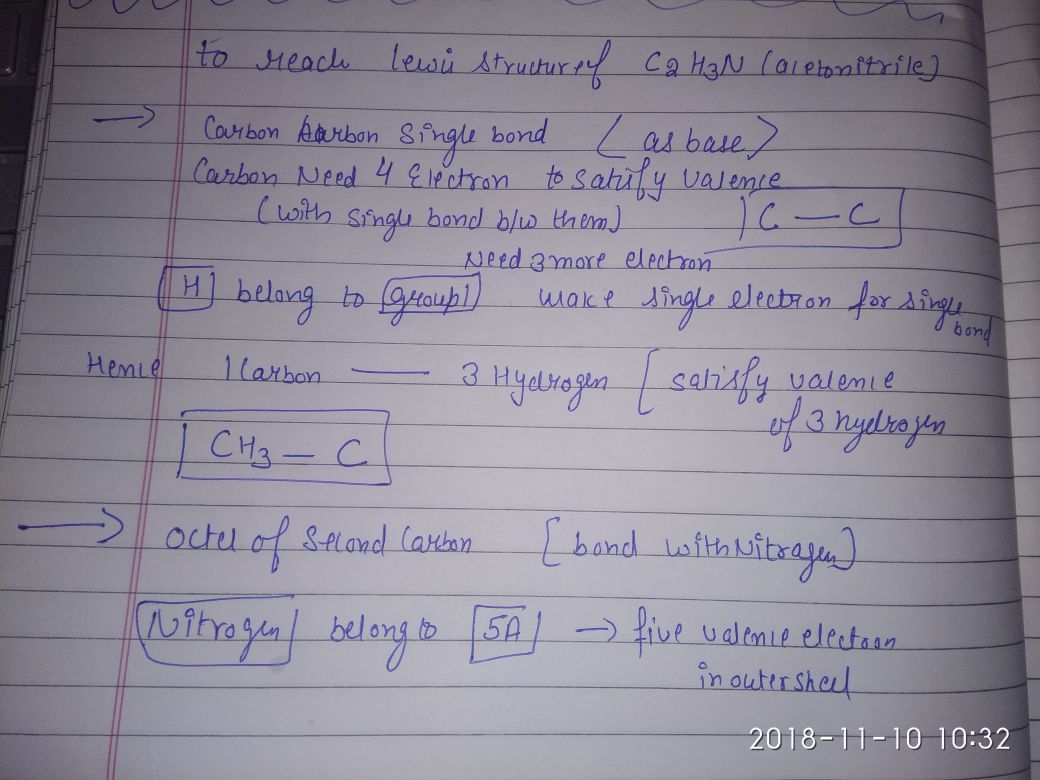 to reach lewis structure of C2H3N (acetonitrile)
→ Carbon Carbon Single bond < as base >
Carbon Need 4 Electron to satisfy valence
(with single bond b/w them) C — C
Need 3 more electron
H belong to group1 make single electron for single bond
Hence 1 Carbon — 3 Hydrogen [ satisfy valence
of 3 hydrogen
CH3 — C
→ octet of Second Carbon [ bond with Nitrogen ]
Nitrogen belong to 5A → five valence electron
in outer shell
2018-11-10 10:32